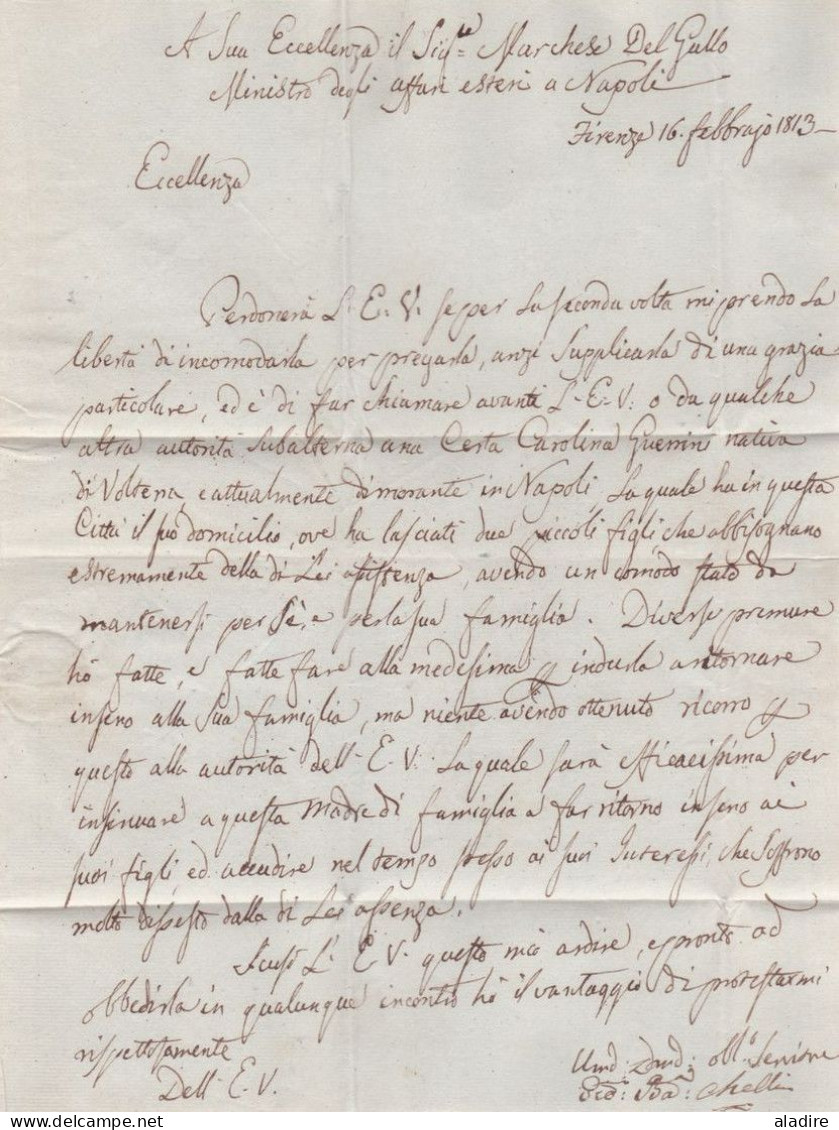 A Sua Eccellenza il Sig.re Marchese Del Gallo
Ministro degli affari esteri a Napoli
Firenze 16. febbrajo 1813
Eccellenza
Perdonerà L'E. V. se per la seconda volta mi prendo la
libertà di incomodarla per pregarla, anzi supplicarla di una grazia
particolare, ed è di far chiamare avanti L'E. V: o da qualche
altra autorità subalterna una Certa Carolina Guerrini nativa
di Volterra, e attualmente dimorante in Napoli la quale ha in questa
Città il suo domicilio, ove ha lasciati due piccoli figli che abbisognano
estremamente della di Lei assistenza, avendo un comodo stato da
mantenersi per sè, e per la sua famiglia. Diverse premure
hò fatte, e fatte fare alla medesima p indurla a ritornare
in seno alla sua famiglia, ma niente avendo ottenuto ricorro p
questo alla autorità dell'E. V: la quale sarà efficacissima per
insinuare a questa Madre di famiglia a far ritorno in seno ai
suoi figli, ed accudire nel tempo stesso ai suoi Interessi, che soffrono
molto dissesto dalla di Lei assenza.
Scusi L'E V. questo mio ardire, e pronto ad
obbedirla in qualunque incontro hò il vantaggio di protestarmi
rispettosamente
Dell'E. V.
Um: Dev: obb.o Servitore
Chelli
aladire